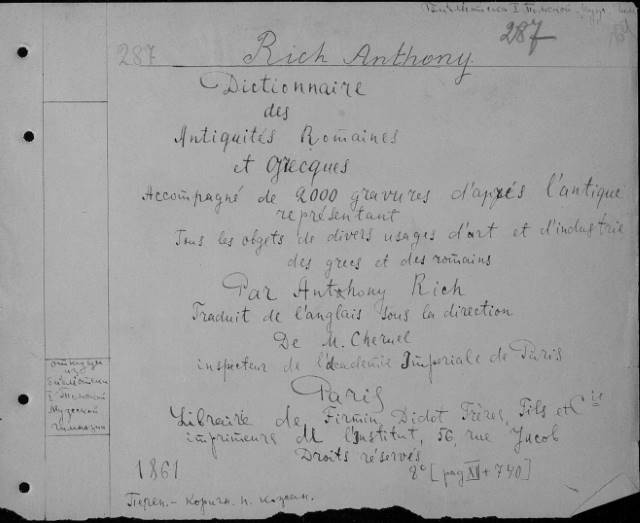 Библиотека I Тифлисской мужс.
287
287
Rich Anthony
Dictionnaire
des
Antiquités Romaines
et Grecques
Accompagné de 2000 gravures d'après l'antique
représentant
Tous les objets de divers usages d'art et d'industrie
des grecs et des romains
Par Antzhony Rich
Traduit de l'anglais sous la direction
De M. Cheruel
inspecteur de l'Académie Impériale de Paris
Paris
Librairie de Firmin Didot Frères, Fils et Cie
imprimeurs de l'Institut, 56, rue Jacob
Droits réservés
1861
8° [pag XII + 740]
Перепл.- коричн. п. кожан.
откуда:
из
библiотеки
I
Мужской
гимназии